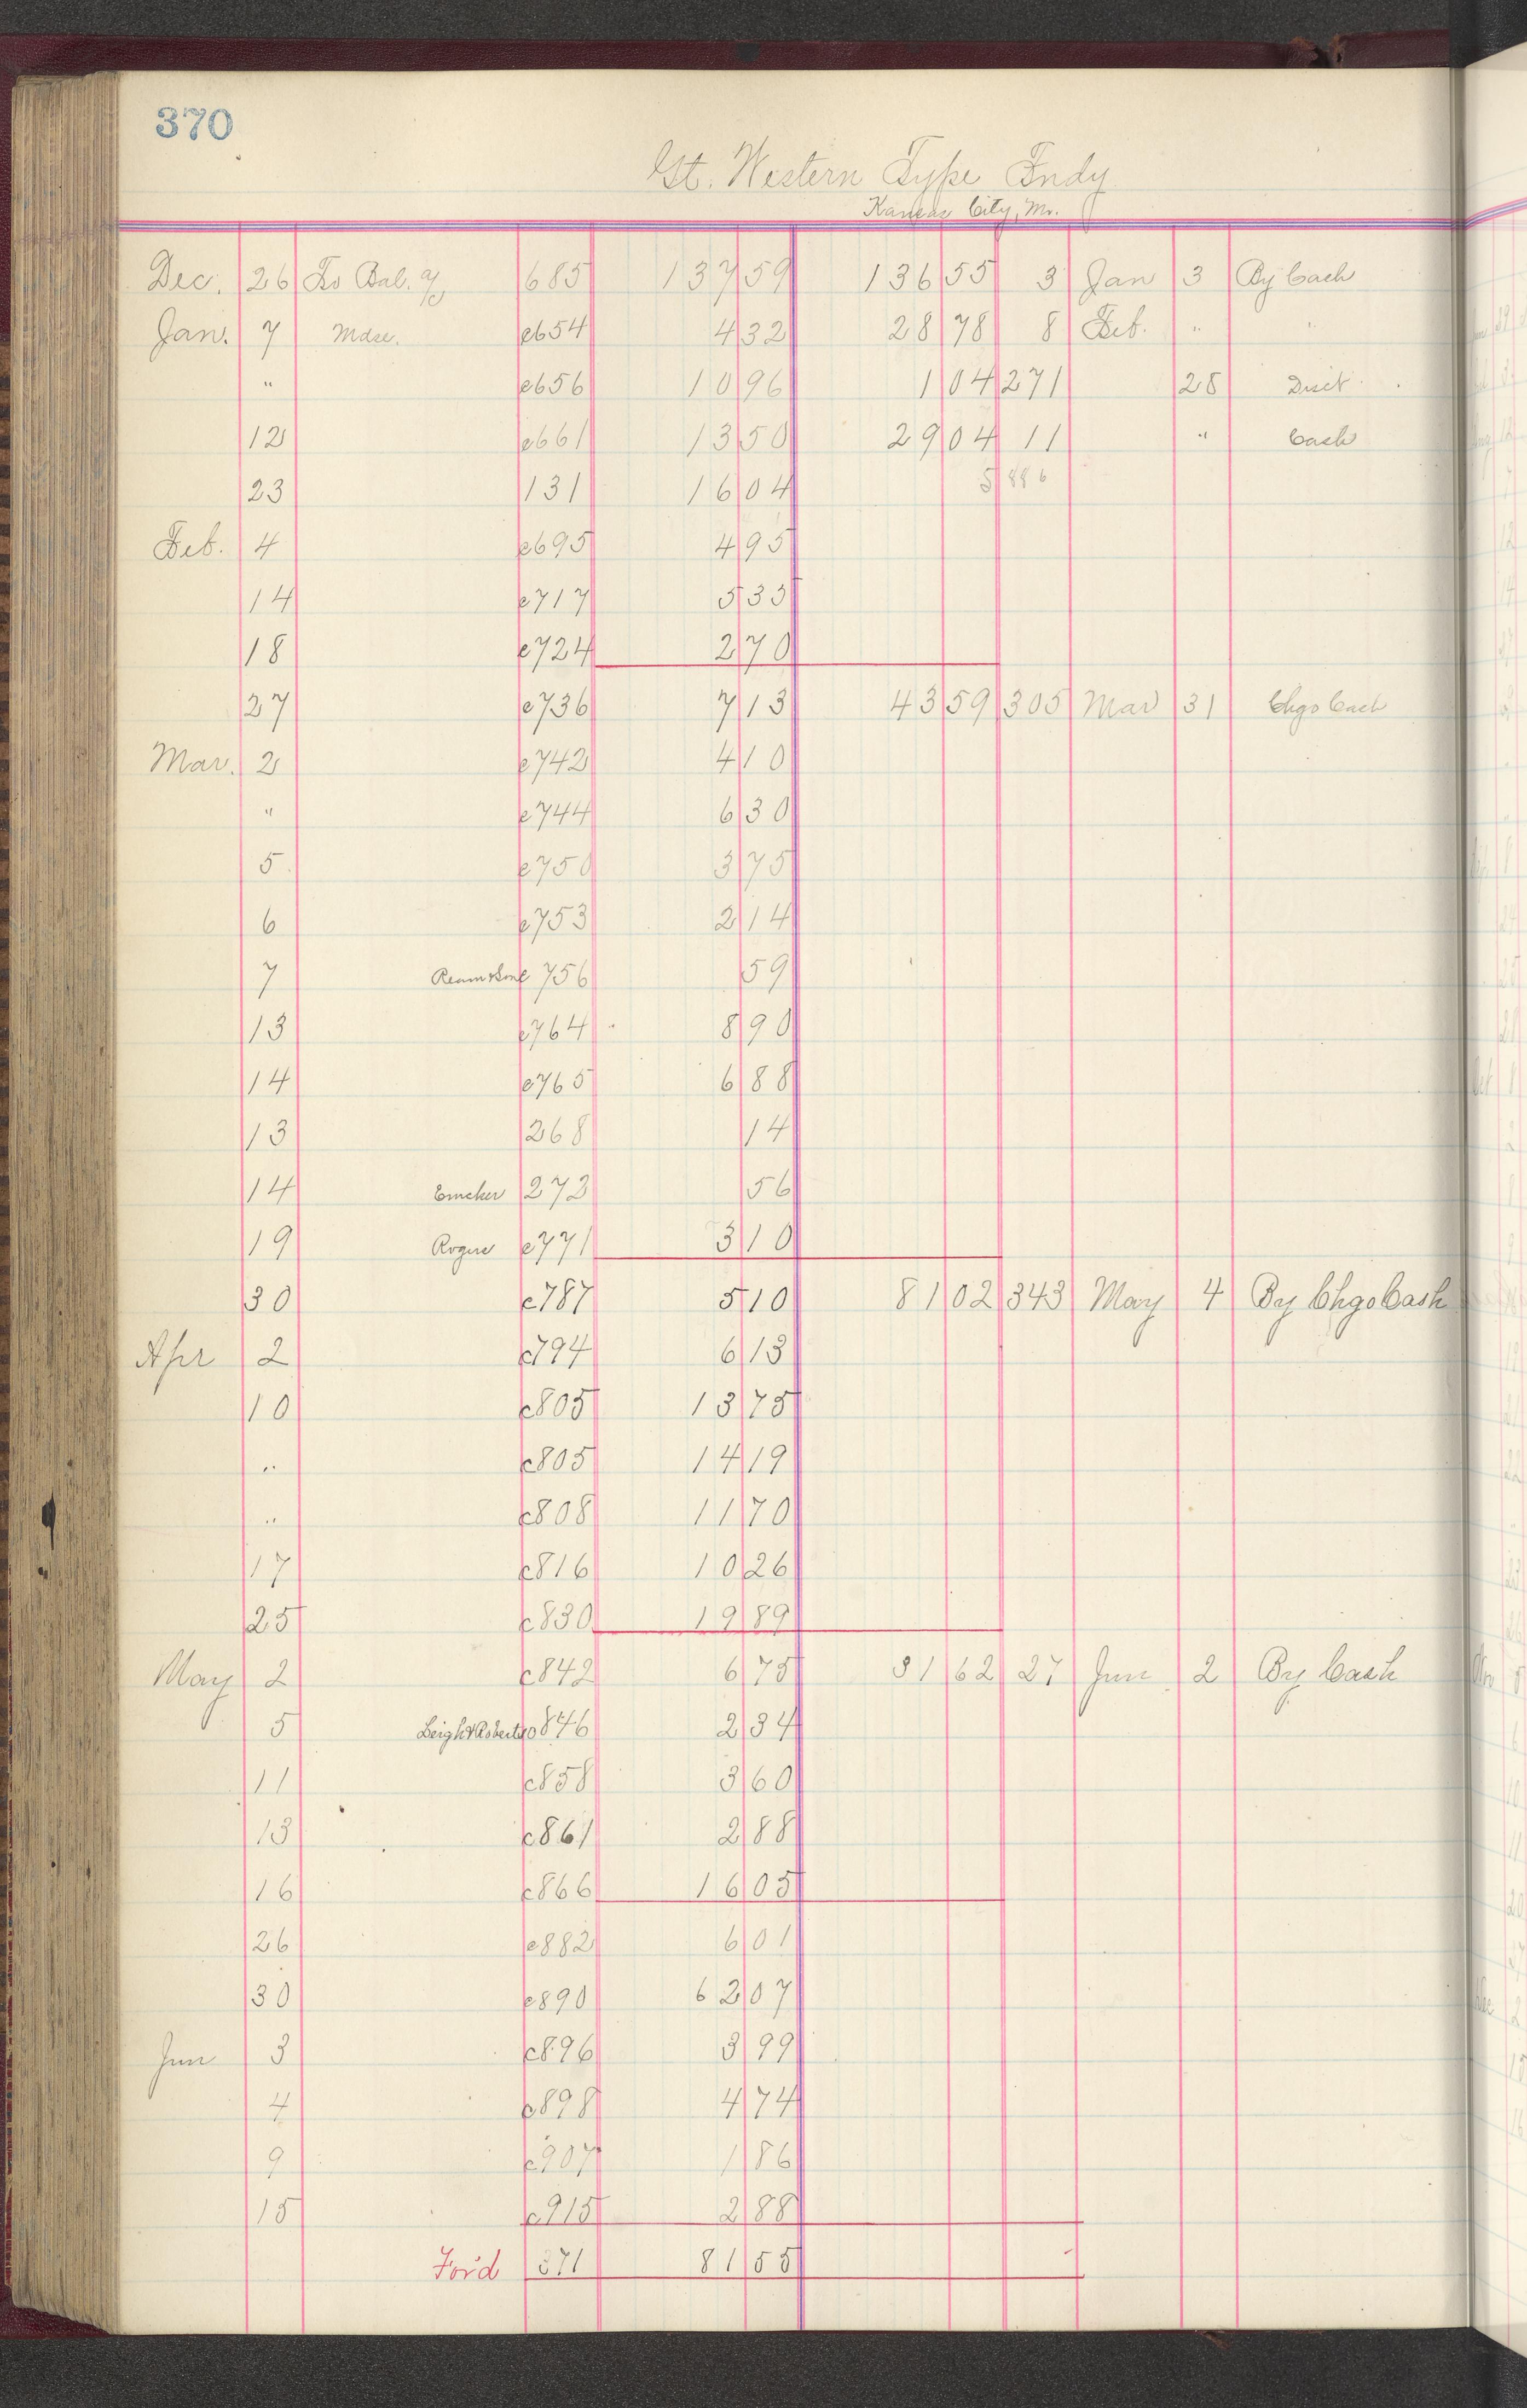 370
Gt. Western Type Fndy
Kansas City, Mo.
Dec. 26 To Bal. a/c 685 137 59 136 55 3 Jan 3 By Cash
Jan. 7 Mdse. c654 4 32 28 78 8 Feb. " "
" c656 10 96 1 04 271 28 Disct
12 c661 13 50 29 04 11 " Cash
23 131 16 04 58 86
Feb. 4 c695 4 95
14 c717 5 33
18 c724 2 70
27 c736 7 13 43 59 305 Mar 31 Chgo Cash
Mar. 2 c742 4 10
" c744 6 30
5 c750 3 75
6 c753 2 14
7 Ream & Son c756 59
13 c764 8 90
14 c765 6 88
13 268 14
14 272 56
19 c771 3 10
30 c787 5 10 81 02 343 May 4 By Chgo Cash
Apr 2 c794 6 13
10 c805 13 75
" c805 14 19
" c808 11 70
17 c816 10 26
25 c830 19 89
May 2 c842 6 75 31 62 27 Jun 2 By Cash
5 Leigh & Roberts c846 2 34
11 c858 3 60
13 c861 2 88
16 c866 16 05
26 c882 6 01
30 c890 62 07
Jun 3 c896 3 99
4 c898 4 74
9 c907 1 86
15 c915 2 88
For'd 371 81 55